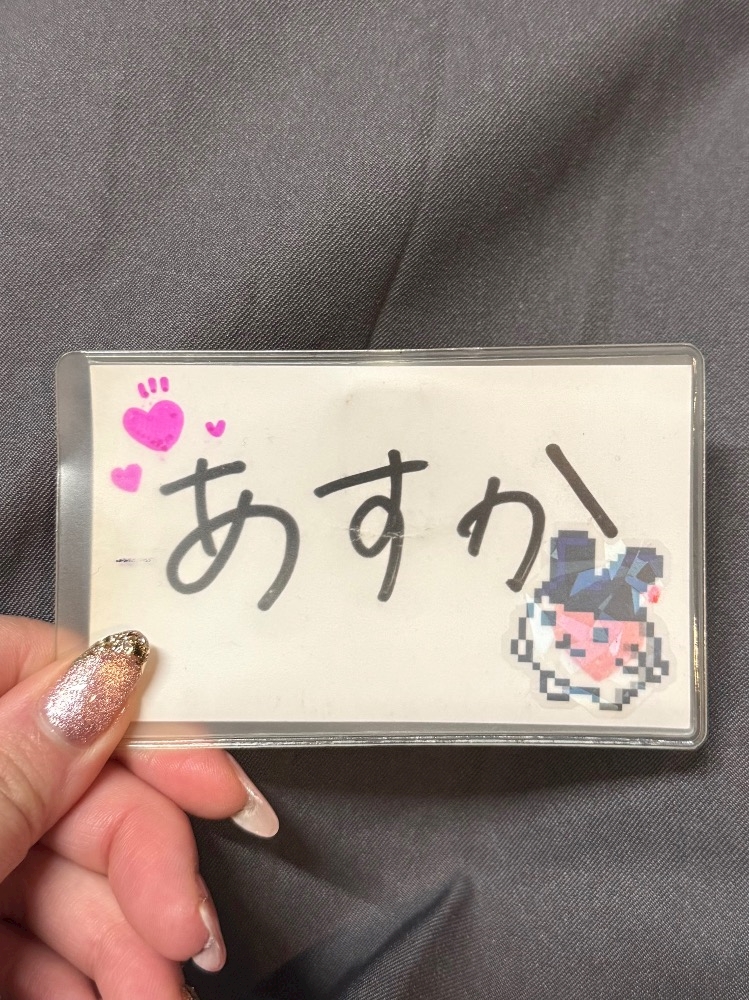 あすか